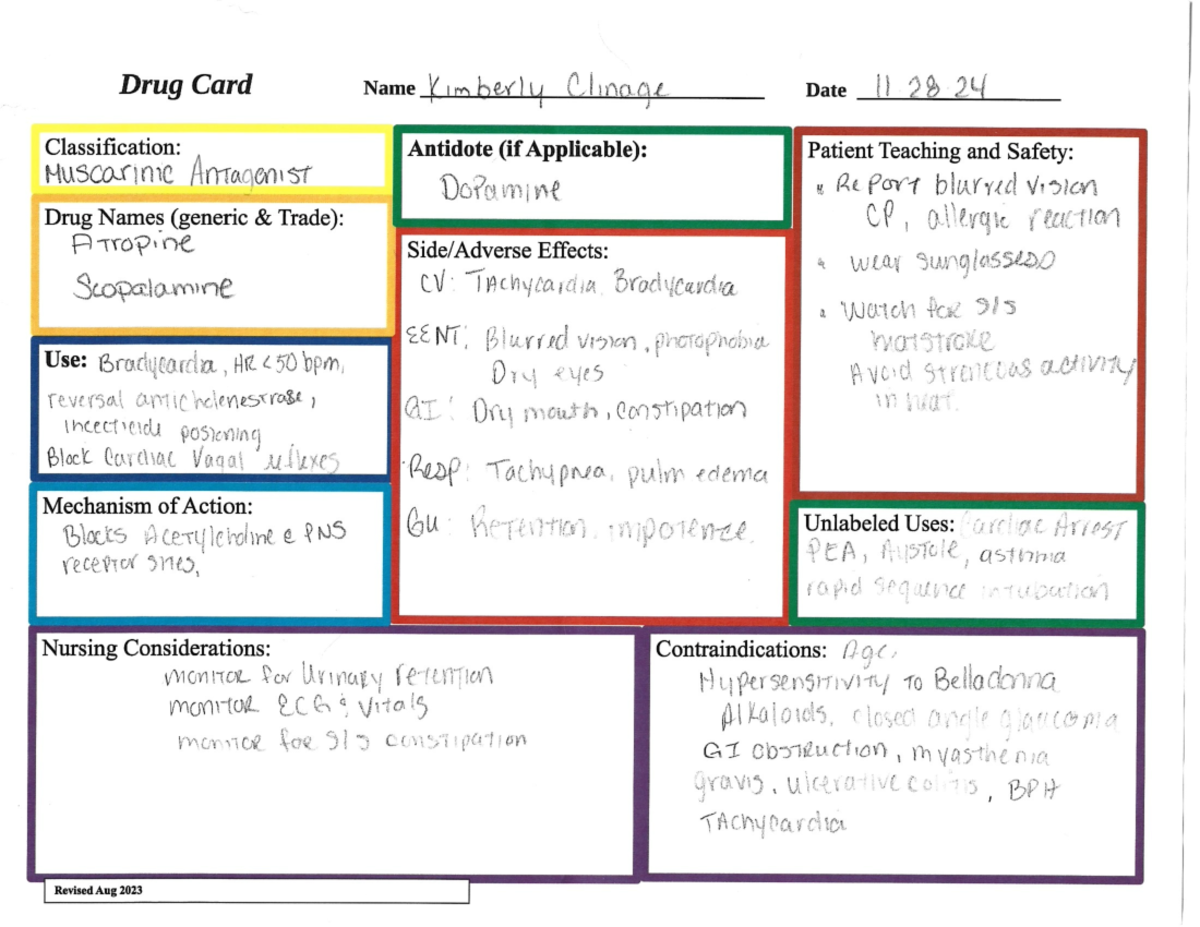 Drug Card Name Kimberly Clinage Date 11.28.24
Classification:
Muscarinic Antagonist
Drug Names (generic & Trade):
Atropine
Scopalamine
Use: Bradycardia, HR <50 bpm,
reversal antichelenestrase,
incecticide posioning
Block Cardiac Vagal reflexes
Mechanism of Action:
Blocks Acetylcholine @ PNS
receptor sites,
Antidote (if Applicable):
Dopamine
Side/Adverse Effects:
CV: Tachycardia, Bradycardia
EENT: Blurred vision, photophobia
Dry eyes
GI: Dry mouth, constipation
Resp: Tachypnea, pulm edema
GU: Retention, impotence.
Patient Teaching and Safety:
Report blurred vision
CP, allergic reaction
wear sunglasses
Watch for s/s
Avoid strenuous activity
in heat.
Unlabeled Uses: Cardiac Arrest
PEA, Aystole, asthma
rapid sequence intubation
Nursing Considerations:
monitor for Urinary retention
monitor ECG & vitals
monitor for s/s constipation
Contraindications: Age,
Hypersensitivity to Belladonna
Alkaloids, closed angle glaucoma
GI obstruction, myasthenia
gravis, ulcerative colitis, BPH
Tachycardia
Revised Aug 2023